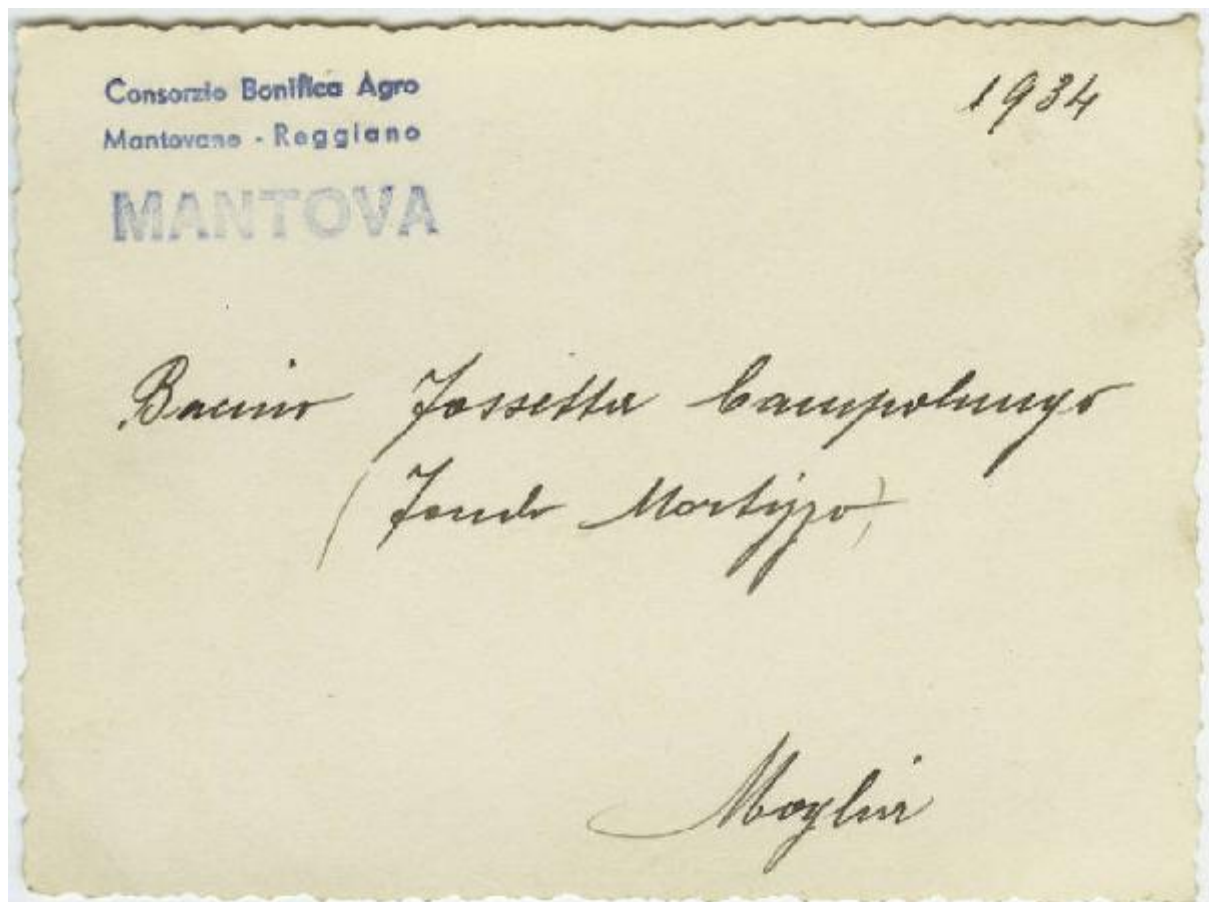 Consorzio Bonifica Agro
Mantovano - Reggiano
MANTOVA
1934
Bacino Fossetta Campolungo
(Fondo Mortizzo)
Moglia